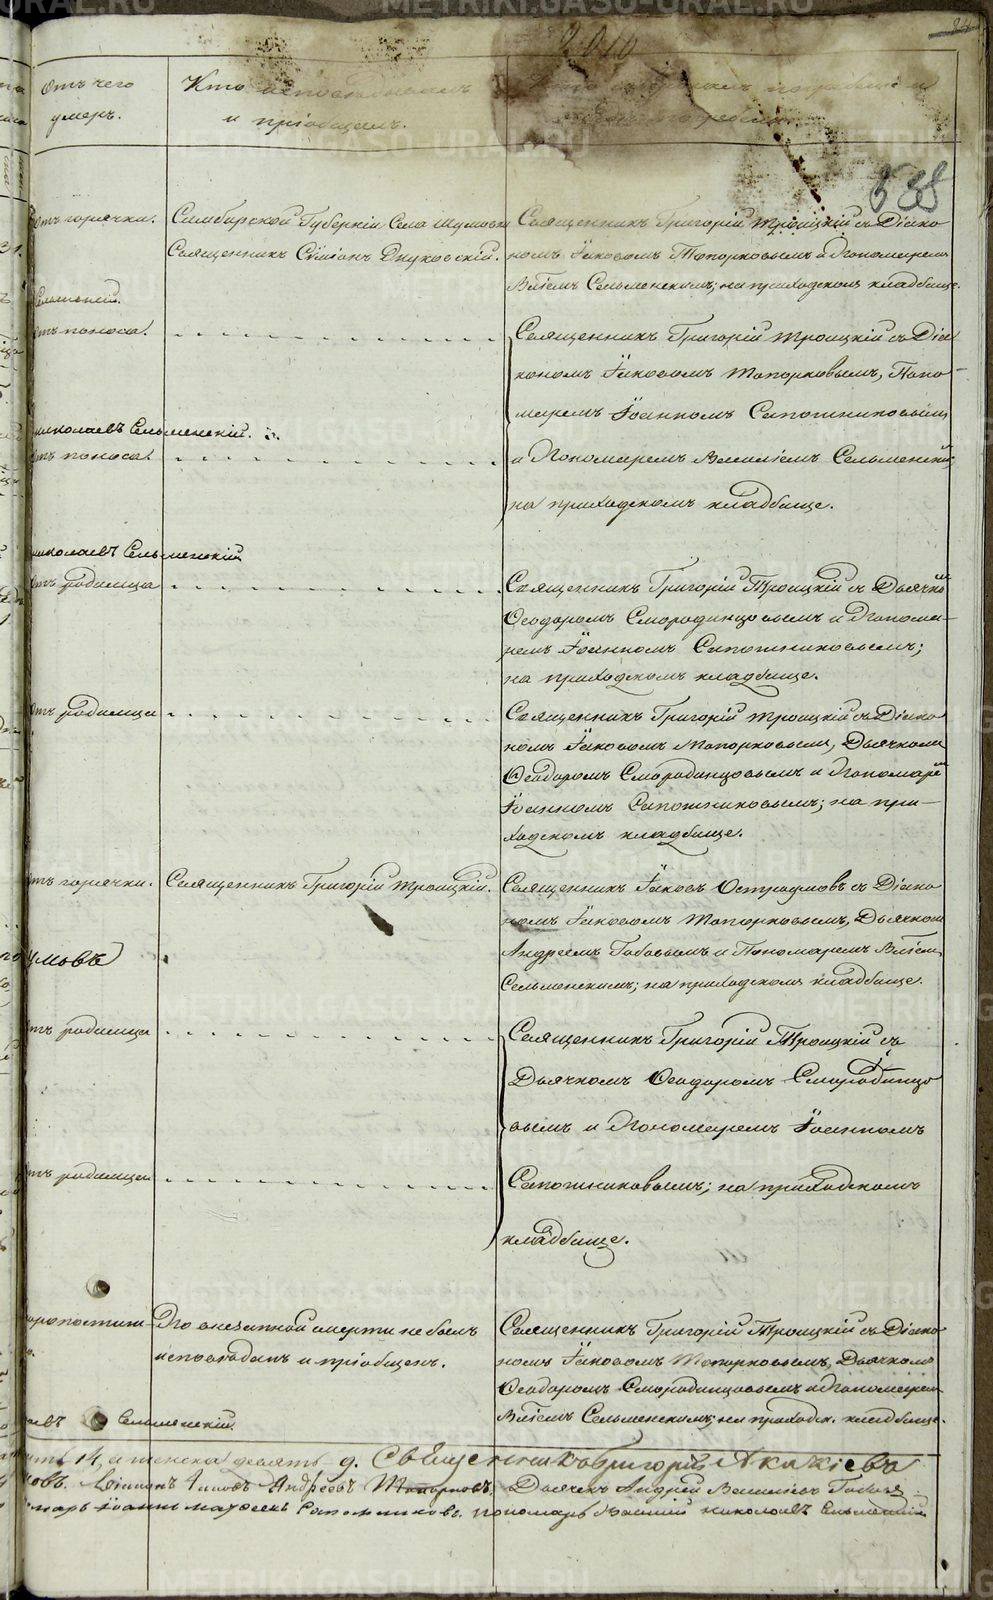 METRIKI.GASO-URAL.RU
2010
Отъ чего
умеръ.
Кто исповѣдывалъ
и пріобщалъ.
538
отъ горячки.
Симбирской Губерніи Села
Священникъ Сѵмеонъ
Священникъ Григорій Троицкій съ Діако
номъ Іаковомъ Топорковымъ и Пономаремъ
Вліемъ Сельменскимъ; на приходскомъ кладбище.
Сельменскій.
отъ поноса.
Священникъ Григорій Троицкій съ Діа
кономъ Іаковомъ Топорковымъ, Поно
маремъ Іоанномъ Сапожниковымъ
николаевъ Сельменскій.
отъ поноса.
и Пономаремъ Василіемъ Сельменскимъ
на приходскомъ кладбище.
николаевъ Сельменскій
отъ родимца
Священникъ Григорій Троицкій съ Дьячко
Ѳеодоромъ Смородинцовымъ и Понома-
ремъ Іоанномъ Сапожниковымъ;
на приходскомъ кладбище.
отъ родимца
Священникъ Григорій Троицкій съ Діако
номъ Іаковомъ Топорковымъ, Дьячкомъ
Ѳеодоромъ Смородинцовымъ и Пономаремъ
Іоанномъ Сапожниковымъ; на при-
ходскомъ кладбище.
отъ горячки.
Священникъ Григорій Троицкій.
Священникъ Іаковъ Остроумовъ съ Діако
номъ Іаковомъ Топорковымъ, Дьячкомъ
Андреемъ Бабовымъ и Пономаремъ Вліем
Сельменскимъ; на приходскомъ кладбище.
умовъ
отъ родимца
Священникъ Григорій Троицкій съ
Дьячкомъ Ѳеодоромъ Смородинцо
вымъ и Пономаремъ Іоанномъ
отъ родимца
Сапожниковымъ; на приходскомъ
кладбище.
По внезапной смерти не былъ
исповѣданъ и пріобщенъ.
Священникъ Григорій Троицкій съ Діако
номъ Іаковомъ Топорковымъ, Дьячкомъ
Ѳеодоромъ Смородинцовымъ и Пономаремъ
Вліемъ Сельменскимъ; на приходск. кладбище.
Сельменскій.
14, а женска девять 9. Священникъ Григорій
Андреевъ Топорковъ. Дьячекъ Андрей Васильевъ
Іоаннъ Матвеевъ Сапожниковъ. пономарь Василій николаевъ Сельменскій